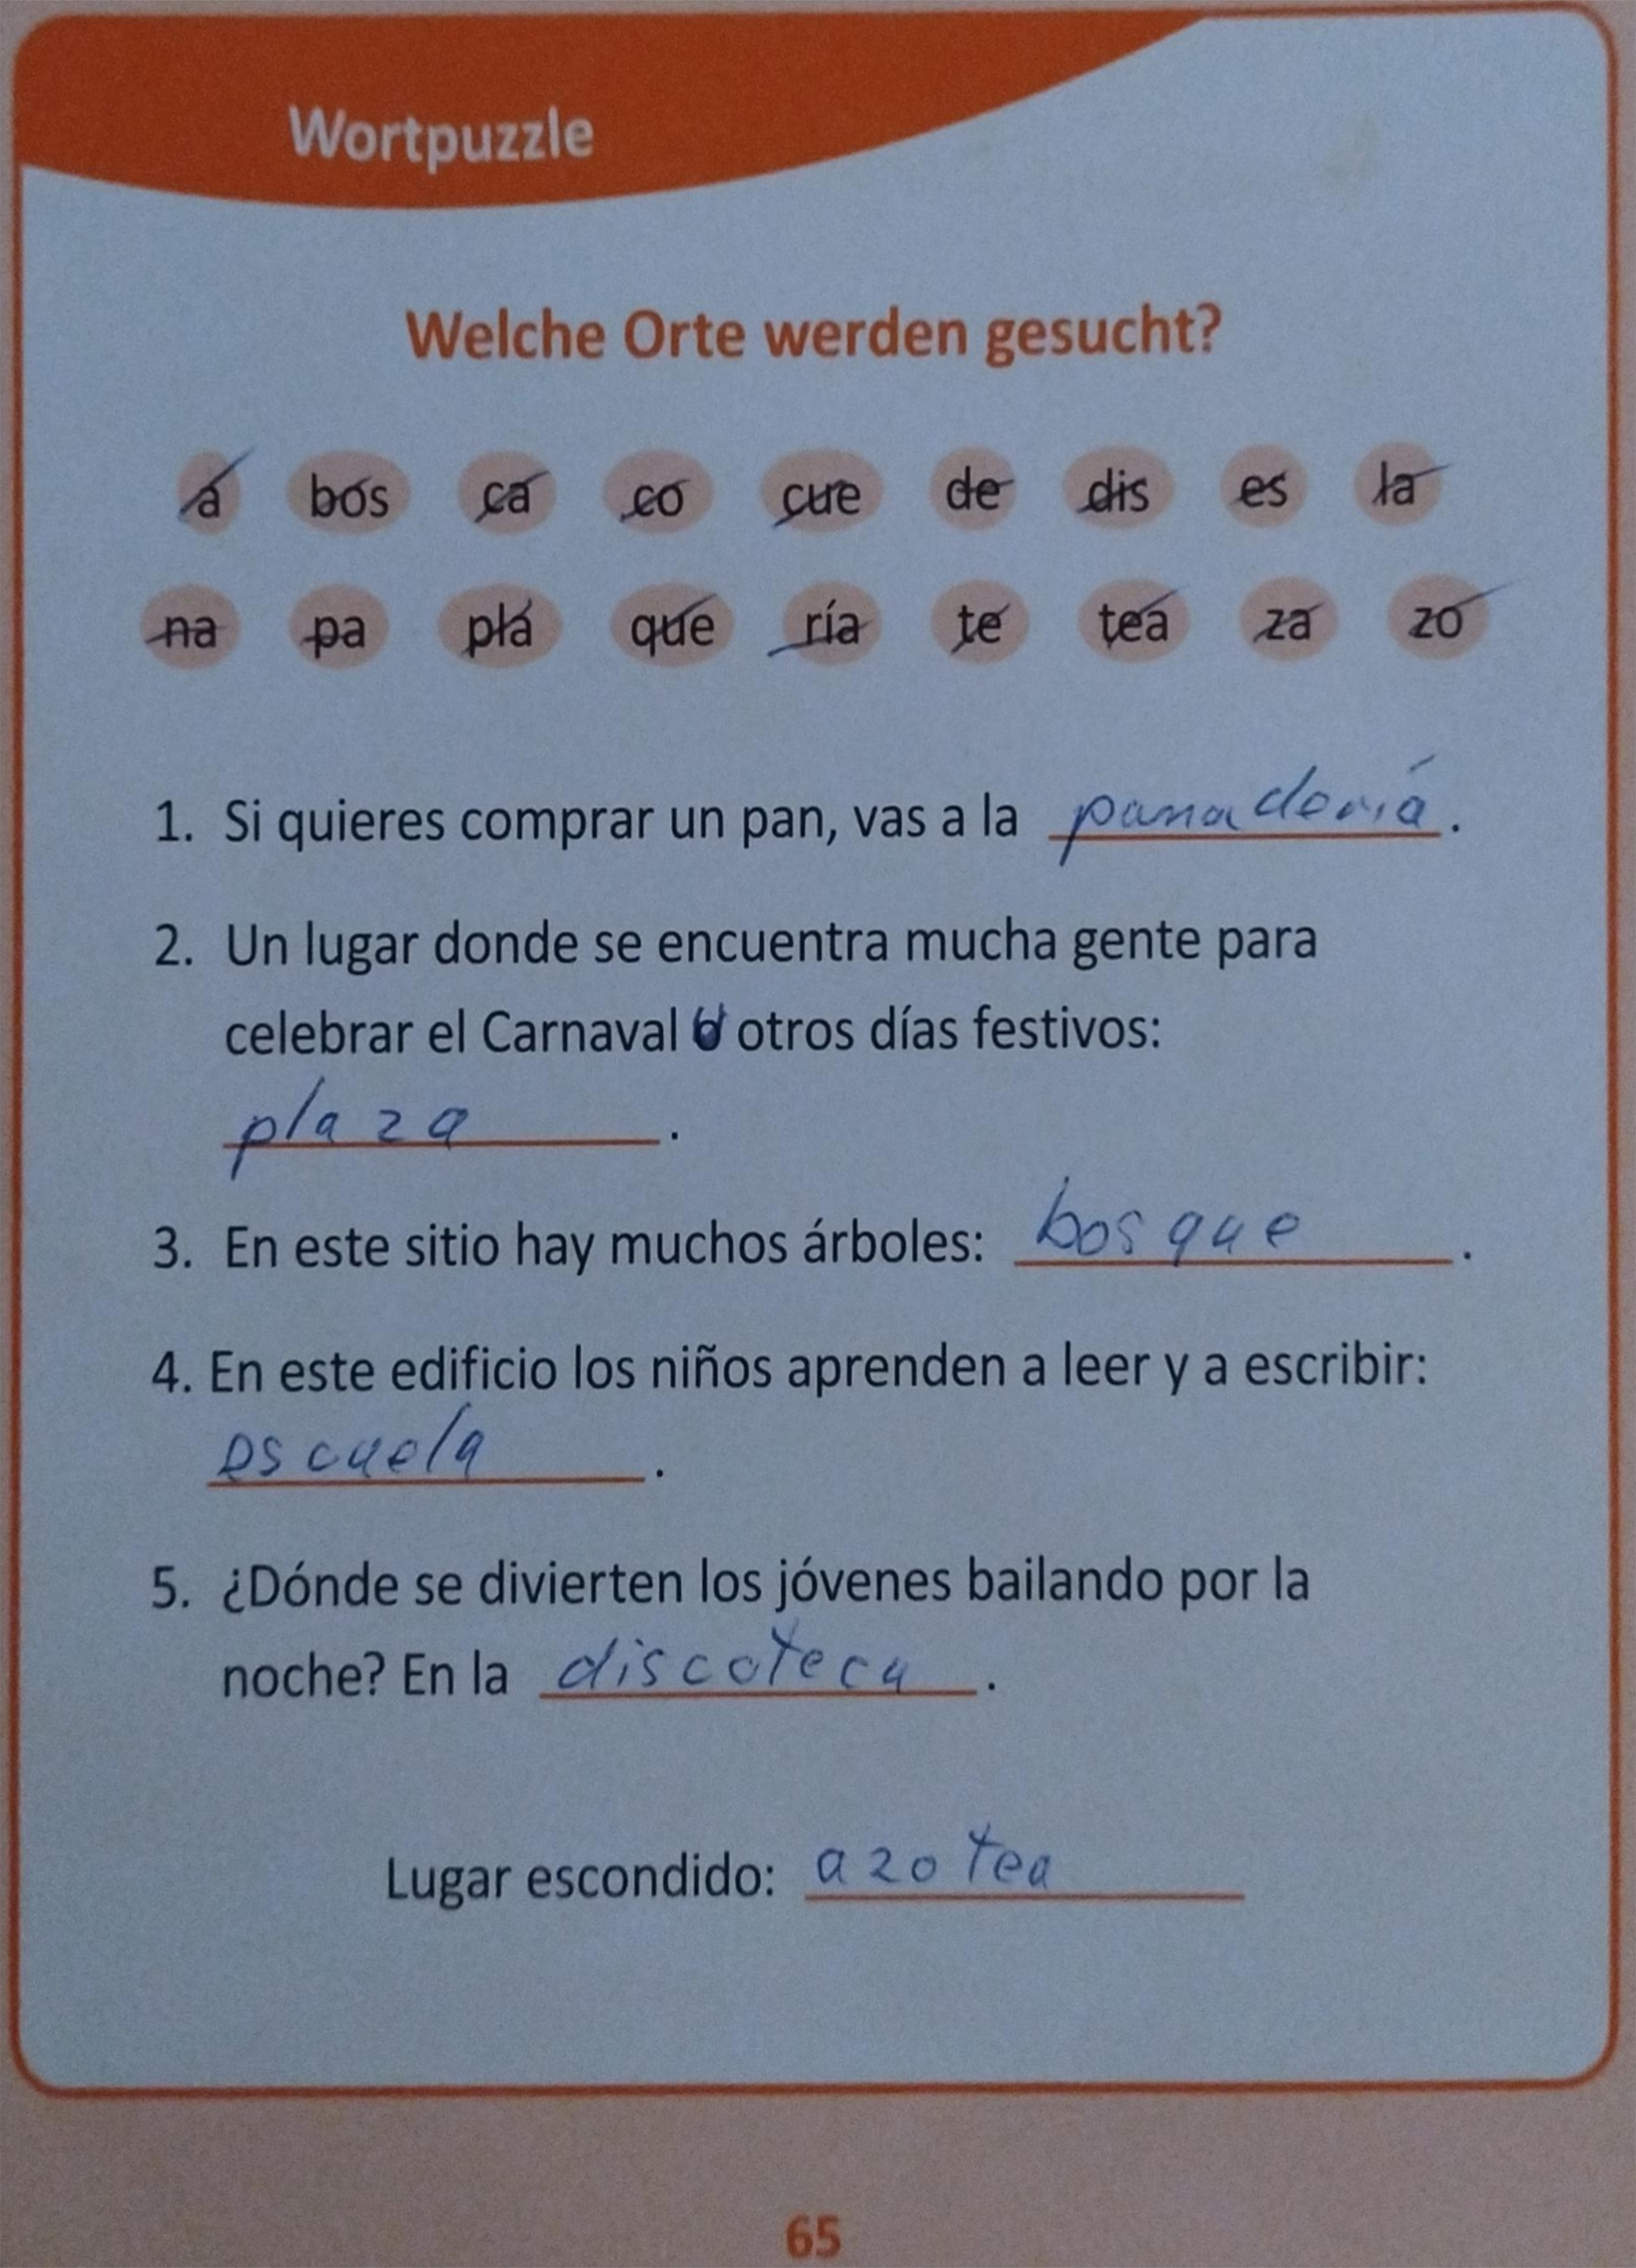 Wortpuzzle
Welche Orte werden gesucht?
a bos ca co cue de dis es la
na pa pla que ría te tea za zo
1. Si quieres comprar un pan, vas a la panadería.
2. Un lugar donde se encuentra mucha gente para
celebrar el Carnaval u otros días festivos:
plaza.
3. En este sitio hay muchos árboles: bosque.
4. En este edificio los niños aprenden a leer y a escribir:
escuela.
5. ¿Dónde se divierten los jóvenes bailando por la
noche? En la discoteca.
Lugar escondido: azotea
65